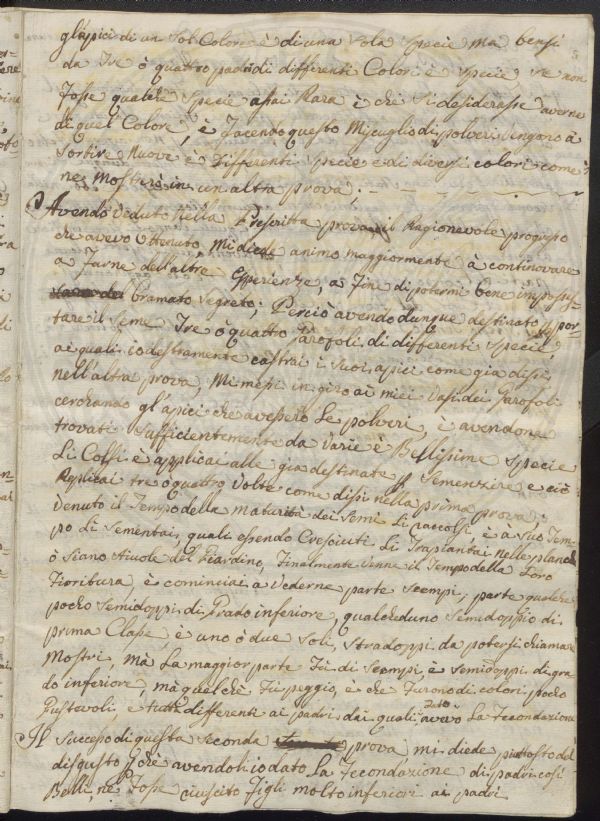 gl'apici di un Sol Colore è di una sola specie ma bensi
da Tre ò quattro padri di differenti Colori è specie se non
fosse qualche specie assai Rara è che si desiderasse averne
di quel Colore, è facendo questo Miscuglio di polveri vengono à
sortire Nuove è differenti specie e di diversi colori come
ne mostrerò in un altra prova;
Avendo veduto nella Prescritta prova il Ragionevole progresso
che avevo ottenuto, mi diede animo maggiormente à continovare
a farne dell'altre Esperienze, a fine di potermi bene impossess
bramato segreto; Perciò avendo dunque destinato p por-
tare il seme Tre ò quattro Garofoli di differenti specie,
ai quali io destramente castrai i suoi apici come già dissi
nell'altra prova, Mi messi in giro ai miei Vasi dei Garofoli
cerchando gl'apici che avessero le polveri, è avendone
trovati sufficientemente da varie è Bellissime specie
Li Colsi è applicai alle già destinate p Semenzire e ciò
Replicai tre ò quattro volte come dissi nella prima prova;
Venuto il tempo della maturità dei semi li raccolsi, è à suo Tem-
po li sementai, quali essendo Cresciuti li Trapiantai nelle planche
ò siano Aiuole del Giardino, Finalmente venne il tempo della loro
Fioritura è cominciai a vederne parte scempi, parte qualche
pocho semidoppi di Grado inferiore, qualcheduno semidoppio di
prima Classe, è uno ò due soli, stradoppi da potersi chiamare
Mostri, mà la maggior parte fù di scempi è semidoppi di gra
do inferiore, mà quel chè fù peggio, e che furono di colori pocho
Gustevoli, è tutti differenti ai padri dai quali avevo dato la fecondazione
Il successo di questa seconda prova, mi diede piutosto del
disgusto p che avendoli io dato la fecondazione di padri così
Belli, ne fosse riuscito figli molto inferiori ai padri